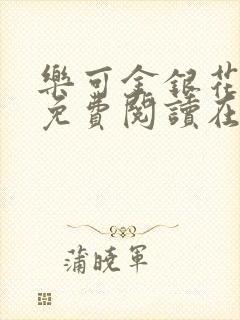 樂可金銀花
免費閱讀在
蒲曉軍